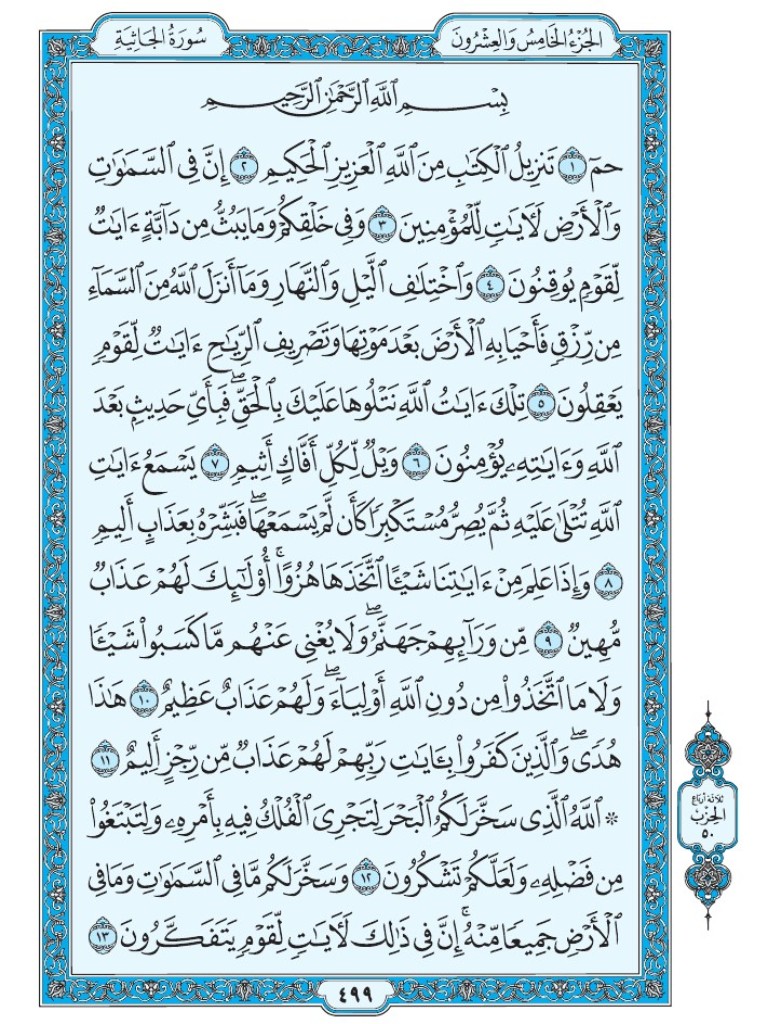 الجُزْءُ الخَامِسُ وَالعِشْرُونَ
سُورَةُ الجَاثِيَةِ
بِسْمِ ٱللَّهِ ٱلرَّحْمَٰنِ ٱلرَّحِيمِ
حمٓ ١ تَنزِيلُ ٱلْكِتَٰبِ مِنَ ٱللَّهِ ٱلْعَزِيزِ ٱلْحَكِيمِ ٢ إِنَّ فِى ٱلسَّمَٰوَٰتِ
وَٱلْأَرْضِ لَءَايَٰتٍ لِّلْمُؤْمِنِينَ ٣ وَفِى خَلْقِكُمْ وَمَا يَبُثُّ مِن دَآبَّةٍ ءَايَٰتٌ
لِّقَوْمٍ يُوقِنُونَ ٤ وَٱخْتِلَٰفِ ٱلَّيْلِ وَٱلنَّهَارِ وَمَآ أَنزَلَ ٱللَّهُ مِنَ ٱلسَّمَآءِ
مِن رِّزْقٍ فَأَحْيَا بِهِ ٱلْأَرْضَ بَعْدَ مَوْتِهَا وَتَصْرِيفِ ٱلرِّيَٰحِ ءَايَٰتٌ لِّقَوْمٍ
يَعْقِلُونَ ٥ تِلْكَ ءَايَٰتُ ٱللَّهِ نَتْلُوهَا عَلَيْكَ بِٱلْحَقِّ ۖ فَبِأَىِّ حَدِيثٍۭ بَعْدَ
ٱللَّهِ وَءَايَٰتِهِۦ يُؤْمِنُونَ ٦ وَيْلٌ لِّكُلِّ أَفَّاكٍ أَثِيمٍ ٧ يَسْمَعُ ءَايَٰتِ
ٱللَّهِ تُتْلَىٰ عَلَيْهِ ثُمَّ يُصِرُّ مُسْتَكْبِرًا كَأَن لَّمْ يَسْمَعْهَا ۖ فَبَشِّرْهُ بِعَذَابٍ أَلِيمٍ
٨ وَإِذَا عَلِمَ مِنْ ءَايَٰتِنَا شَيْـًٔا ٱتَّخَذَهَا هُزُوًا ۚ أُو۟لَٰٓئِكَ لَهُمْ عَذَابٌ
مُّهِينٌ ٩ مِّن وَرَآئِهِمْ جَهَنَّمُ ۖ وَلَا يُغْنِى عَنْهُم مَّا كَسَبُوا۟ شَيْـًٔا
وَلَا مَا ٱتَّخَذُوا۟ مِن دُونِ ٱللَّهِ أَوْلِيَآءَ ۖ وَلَهُمْ عَذَابٌ عَظِيمٌ ١٠ هَٰذَا
هُدًى ۖ وَٱلَّذِينَ كَفَرُوا۟ بِـَٔايَٰتِ رَبِّهِمْ لَهُمْ عَذَابٌ مِّن رِّجْزٍ أَلِيمٌ ١١
۞ ٱللَّهُ ٱلَّذِى سَخَّرَ لَكُمُ ٱلْبَحْرَ لِتَجْرِىَ ٱلْفُلْكُ فِيهِ بِأَمْرِهِۦ وَلِتَبْتَغُوا۟
مِن فَضْلِهِۦ وَلَعَلَّكُمْ تَشْكُرُونَ ١٢ وَسَخَّرَ لَكُم مَّا فِى ٱلسَّمَٰوَٰتِ وَمَا فِى
ٱلْأَرْضِ جَمِيعًا مِّنْهُ ۚ إِنَّ فِى ذَٰلِكَ لَءَايَٰتٍ لِّقَوْمٍ يَتَفَكَّرُونَ ١٣
ثلاثة أرباع
الحِزْب
٥٠
٤٩٩